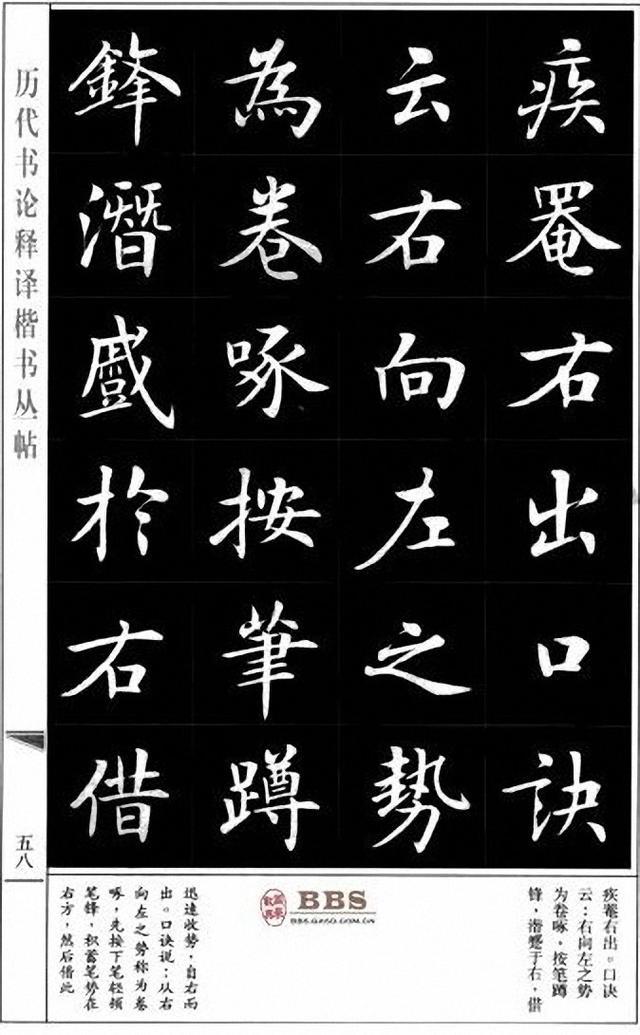 疾罨右出口訣
云右向左之勢
為卷啄按筆蹲
鋒潛蹙於右借
历代书论释译楷书丛帖
五八
疾罨右出。口诀
云：右向左之势
为卷啄，按笔蹲
锋，潜蹙于右，借
迅速收势，自右而
出。口诀说：从右
向左之势称为卷
啄，先按下笔轻顿
笔锋，积蓄笔势在
右方，然后借此
BBS